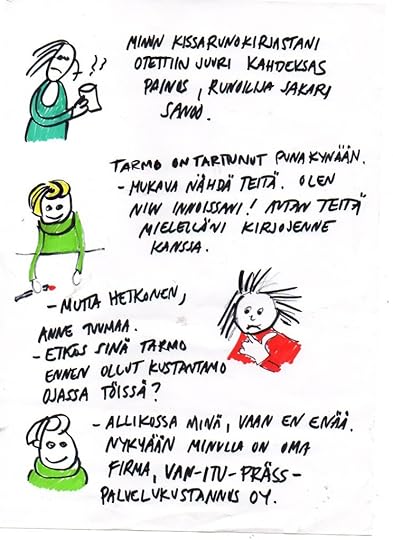 MINUN KISSARUNOKIRJASTANI
OTETTIIN JUURI KAHDEKSAS
PAINOS, RUNOILIJA SAKARI
SANOO.
TARMO ON TARTUNUT PUNAKYNÄÄN.
- MUKAVA NÄHDÄ TEITÄ. OLEN
NIIN INNOISSANI! AUTAN TEITÄ
MIELELLÄNI KIRJOJENNE
KANSSA.
- MUTTA HETKONEN,
ANNE TUUMAA.
- ETKÖS SINÄ TARMO
ENNEN OLLUT KUSTANTAMO
OJASSA TÖISSÄ?
- ALLIKOSSA MINÄ, VAAN EN ENÄÄ.
NYKYÄÄN MINULLA ON OMA
FIRMA, VAN-ITU-PRÄSS-
PALVELUKUSTANNUS OY.